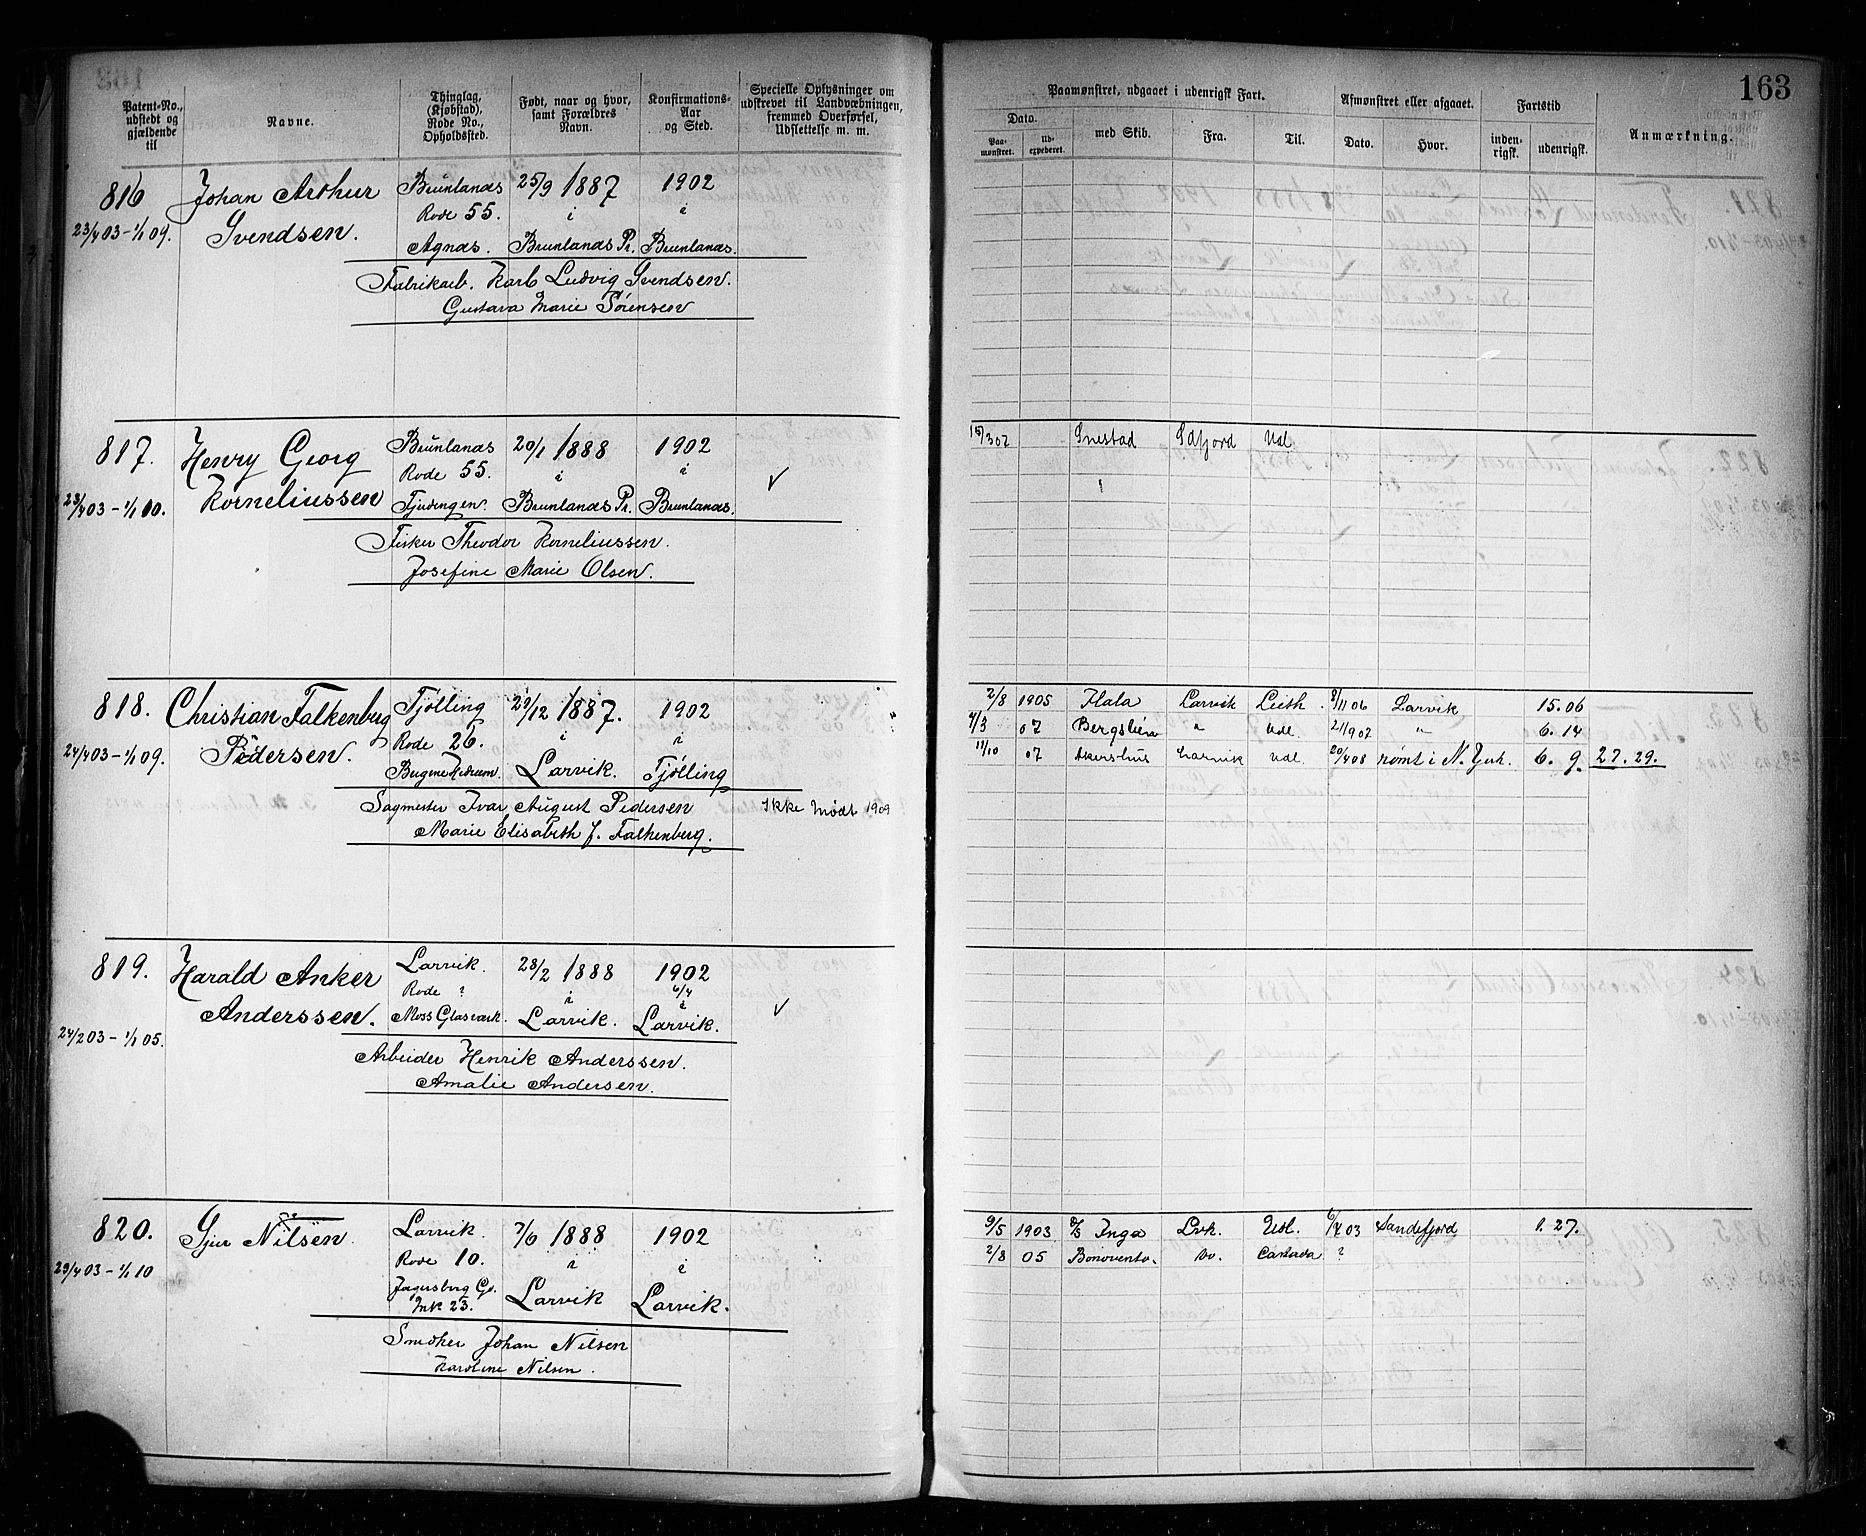 163
Patent-No., udstedt og gjældende til
Navne.
Thinglag, (Kjøbstad), Rode No., Opholdssted.
Født, naar og hvor, samt Forældres Navn.
Konfirmations-Aar og Sted.
Specielle Oplysninger om udskrevet til Landvæbningen, fremmed Overførsel, Udslettelse m. m.
Paamønstret, udgaaet i udenrigsk Fart.
Afmønstret eller afgaaet.
Fartstid
Anmærkning.
Dato.
Paa-mønstret.
Ud-expederet.
med Skib.
Fra.
Til.
Dato.
Hvor.
inden-rigsk.
udenrigsk.
816 Johan Arthur Brunlanæs 25/9 1887 1902
Rode 55. i i
23/4 03 - 1/1 09. Svendsen. Agnæs. Brunlanæs Pr. Brunlanæs.
Fabrikarb. Karl Ludvig Svendsen.
Gustava Marie Sørensen
817. Henry Georg Brunlanæs 20/1 1888 1902
Rode 55. i i
23/4 03 - 1/1 10. Korneliussen Brunlanæs Pr. Brunlanæs.
Fisker Theodor Korneliussen.
Josefine Marie Olsen.
Snestad Udl
818. Christian Falkenberg Tjølling 29/12 1887. 1902
Rode 26. i i
24/4 03 - 1/1 09. Pedersen. Larvik. Tjølling
Sagmester Ivar August Pedersen Ikke Mødt 1909
Marie Elisabeth J. Falkenberg.
2/8 1905 Larvik Leith 8/11 06 Larvik 15.06
4/3 07 " Udl. 21/9 07 " 6. 14
11/10 07 Akershus Larvik Udl. 20/4 08 rømt i N. York. 6. 9. 27. 29.
819. Harald Anker Larvik. 28/2 1888 1902
Rode ? i 6/4 i
24/2 03 - 1/1 05. Anderssen. Moss Glasværk. Larvik. Larvik.
Arbeider Henrik Anderssen.
Amalie Andersen.
820. Sjur Nilsen. Larvik. 7/6 1888 1902
Rode 10. i i
29/4 03 - 1/1 10 Larvik Larvik.
23.
Smedker Johan Nilsen
Karoline Nilsen.
9/5 1903 Inga Lvk. Udl. Sandefjord 1. 27.
2/8 05 Bonovento. Do. Canada ?